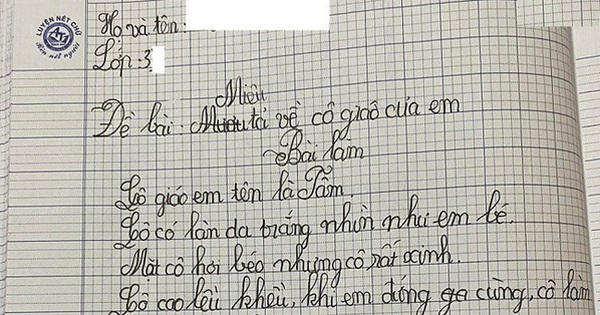 LUYỆN NÉT CHỮ
Rèn nết người
Họ và tên:
Lớp 3
Miêu
Đề bài: tả về cô giáo của em
Bài làm
Cô giáo em tên là Tâm.
Cô có làn da trắng nhìn như em bé.
Mặt cô hơi béo nhưng cô rất xinh.
Cô cao lêu khêu, khi em đứng cùng, cô làm